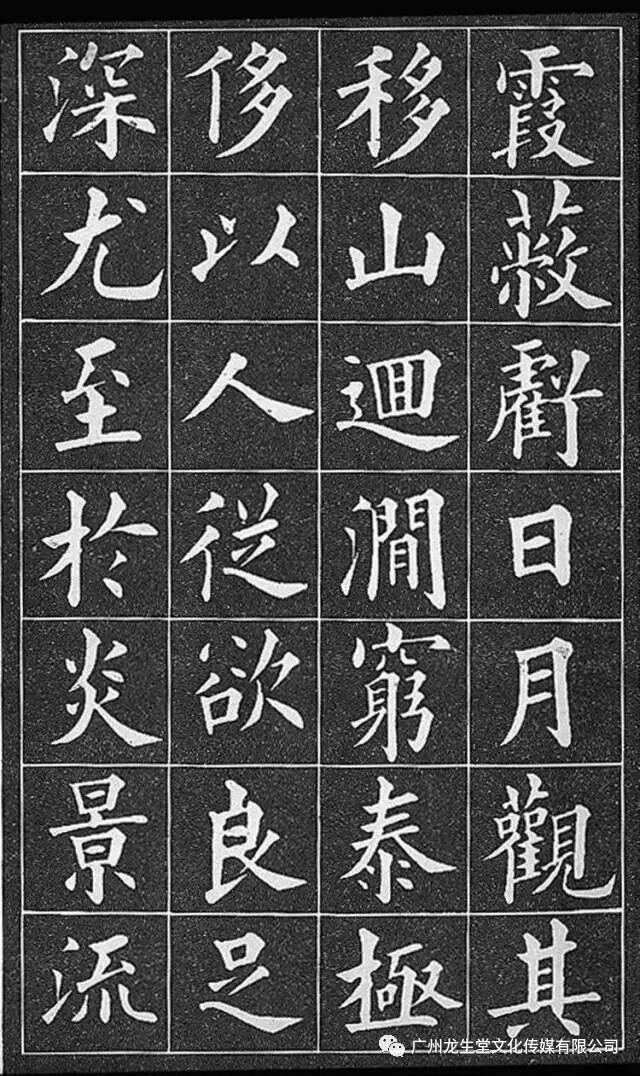 霞蔽虧日月觀其
移山迴澗窮泰極
侈以人從欲良足
深尤至於炎景流
广州龙生堂文化传媒有限公司